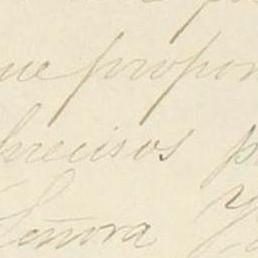 que propor
precisos p
Señora